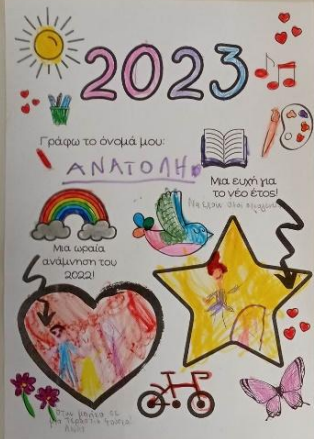 2023
Γράφω το όνομά μου:
ΑΝΑΤΟΛΗ
Μια ευχή για
το νέο έτος!
Μια ωραία
ανάμνηση του
2022!